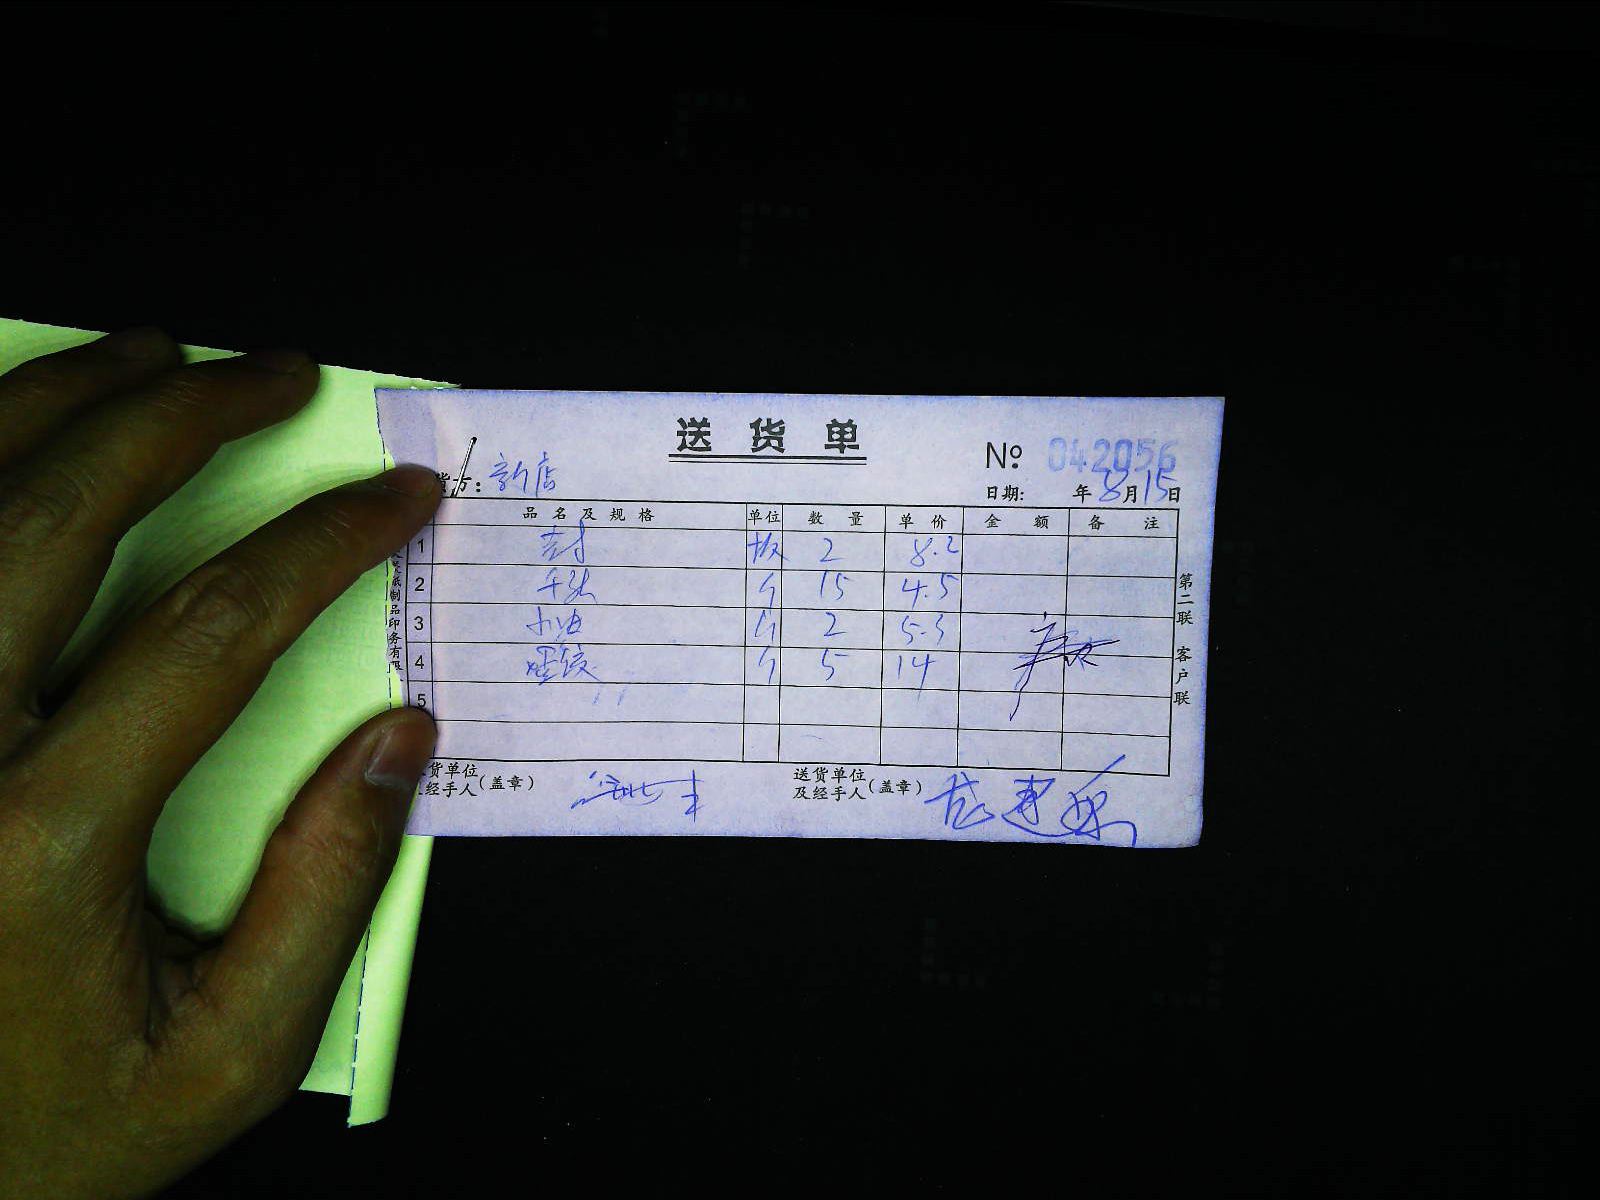 送货单
№ 042056
货方：新店
日期： 年8月15日
品名及规格 单位 数量 单价 金额 备注
1 板 2 8.2
2 千张 个 15 4.5
3 小油 个 2 5.5
4 个 5 14
5
货单位
及经手人（盖章）
送货单位
及经手人（盖章）
第二联 客户联
纸制品印务有限